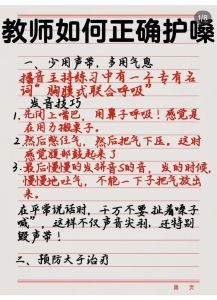 1/8
教师如何正确护嗓
一、少用声带,多用气息
播音主持练习中有一个专有名
词“胸腹式联合呼吸”
发音技巧
1.先闭上嘴巴,用鼻子呼吸!感觉是
在用力搬桌子。
2.然后憋住气,然后把气下压。这时
感觉腹部鼓起来了
3.最后慢慢的发拼音S的音,发的时候,
慢慢地吐气,不能一下子把气放出
来。
在平常说话时,千万不要扯着嗓子
喊”,这样不仅声音尖刺,还特别
毁声带!
二、预防大于治疗
第 页